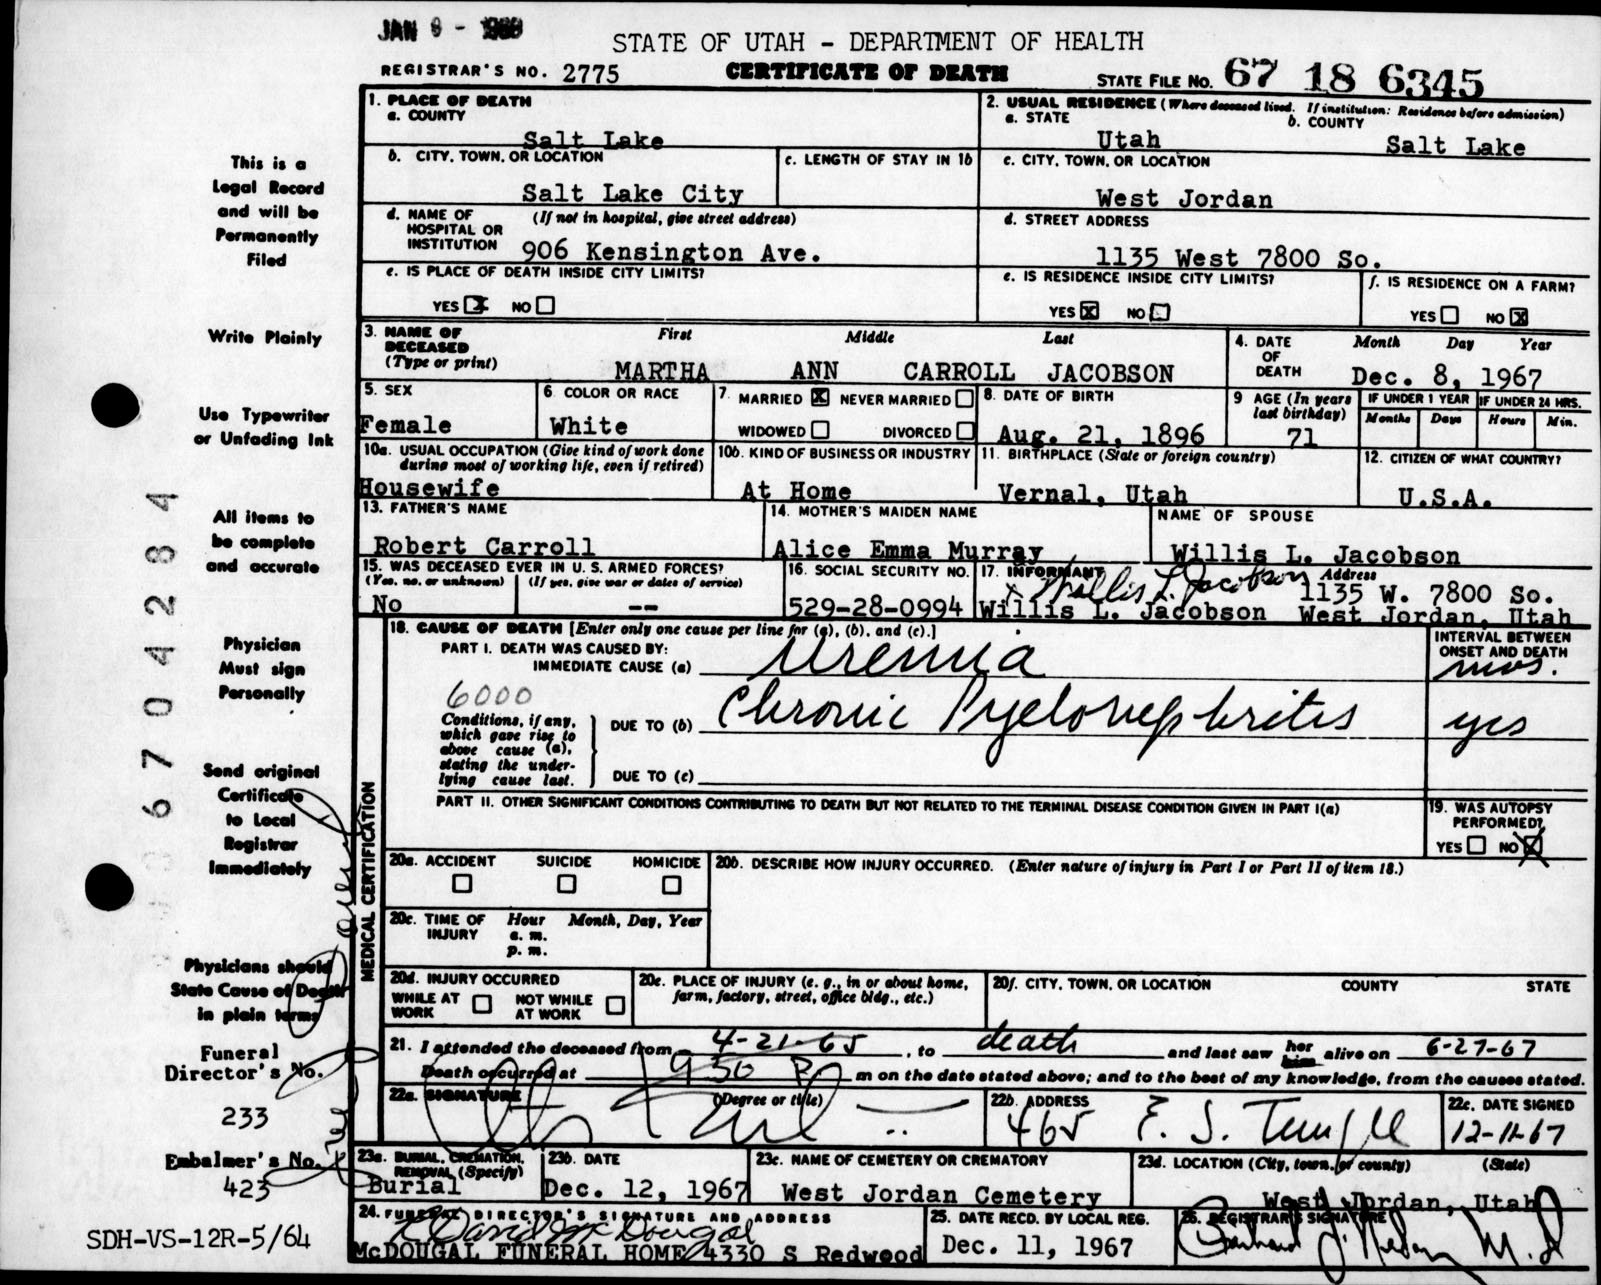 JAN 9 - 1968
STATE OF UTAH - DEPARTMENT OF HEALTH
REGISTRAR'S NO. 2775 CERTIFICATE OF DEATH STATE FILE NO. 67 18 6345
1. PLACE OF DEATH
a. COUNTY
Salt Lake
2. USUAL RESIDENCE (Where deceased lived. If institution: Residence before admission)
a. STATE b. COUNTY
Utah Salt Lake
b. CITY, TOWN, OR LOCATION c. LENGTH OF STAY IN 1b
Salt Lake City
c. CITY, TOWN, OR LOCATION
West Jordan
d. NAME OF HOSPITAL OR INSTITUTION (If not in hospital, give street address)
906 Kensington Ave.
d. STREET ADDRESS
1135 West 7800 So.
e. IS PLACE OF DEATH INSIDE CITY LIMITS?
YES X NO
e. IS RESIDENCE INSIDE CITY LIMITS?
YES X NO
f. IS RESIDENCE ON A FARM?
YES NO X
3. NAME OF DECEASED (Type or print) First Middle Last
MARTHA ANN CARROLL JACOBSON
4. DATE OF DEATH Month Day Year
Dec. 8, 1967
5. SEX
Female
6 COLOR OR RACE
White
7. MARRIED X NEVER MARRIED
WIDOWED DIVORCED
8. DATE OF BIRTH
Aug. 21, 1896
9 AGE (In years last birthday)
71
IF UNDER 1 YEAR IF UNDER 24 HRS.
Months Days Hours Min.
10a. USUAL OCCUPATION (Give kind of work done during most of working life, even if retired)
Housewife
10b. KIND OF BUSINESS OR INDUSTRY
At Home
11. BIRTHPLACE (State or foreign country)
Vernal, Utah
12. CITIZEN OF WHAT COUNTRY?
U.S.A.
13. FATHER'S NAME
Robert Carroll
14. MOTHER'S MAIDEN NAME
Alice Emma Murray
NAME OF SPOUSE
Willis L. Jacobson
15. WAS DECEASED EVER IN U. S. ARMED FORCES?
(Yes, no, or unknown) (If yes, give war or dates of service)
No --
16. SOCIAL SECURITY NO.
529-28-0994
17. INFORMANT Address
Willis L. Jacobson
1135 W. 7800 So.
Willis L. Jacobson West Jordan, Utah
MEDICAL CERTIFICATION
18. CAUSE OF DEATH [Enter only one cause per line for (a), (b), and (c).]
PART I. DEATH WAS CAUSED BY:
IMMEDIATE CAUSE (a) Uremia
INTERVAL BETWEEN ONSET AND DEATH
mos.
6000
Conditions, if any, which gave rise to above cause (a), stating the underlying cause last.
DUE TO (b) Chronic Pyelonephritis yrs
DUE TO (c)
PART II. OTHER SIGNIFICANT CONDITIONS CONTRIBUTING TO DEATH BUT NOT RELATED TO THE TERMINAL DISEASE CONDITION GIVEN IN PART I(a)
19. WAS AUTOPSY PERFORMED?
YES NO X
20a. ACCIDENT SUICIDE HOMICIDE
20b. DESCRIBE HOW INJURY OCCURRED. (Enter nature of injury in Part I or Part II of item 18.)
20c. TIME OF INJURY Hour Month, Day, Year
a. m.
p. m.
20d. INJURY OCCURRED
WHILE AT WORK NOT WHILE AT WORK
20e. PLACE OF INJURY (e. g., in or about home, farm, factory, street, office bldg., etc.)
20f. CITY, TOWN, OR LOCATION COUNTY STATE
21. I attended the deceased from 4-21-65, to death and last saw her him alive on 6-27-67
Death occurred at 9 30 P m on the date stated above; and to the best of my knowledge, from the causes stated.
22a. SIGNATURE (Degree or title)
22b. ADDRESS
465 E. S. Temple
22c. DATE SIGNED
12-11-67
23a. BURIAL, CREMATION, REMOVAL (Specify)
Burial
23b. DATE
Dec. 12, 1967
23c. NAME OF CEMETERY OR CREMATORY
West Jordan Cemetery
23d. LOCATION (City, town, or county) (State)
West Jordan, Utah
24. FUNERAL DIRECTOR'S SIGNATURE AND ADDRESS
David McDougal
McDOUGAL FUNERAL HOME 4330 S Redwood
25. DATE RECD. BY LOCAL REG.
Dec. 11, 1967
26. REGISTRAR'S SIGNATURE
M.D
This is a
Legal Record
and will be
Permanently
Filed
Write Plainly
Use Typewriter
or Unfading Ink
All items to
be complete
and accurate
Physician
Must sign
Personally
Send original
Certificate
to Local
Registrar
Immediately
Physicians should
State Cause of Death
in plain terms
Funeral
Director's No.
233
Embalmer's No.
423
SDH-VS-12R-5/64